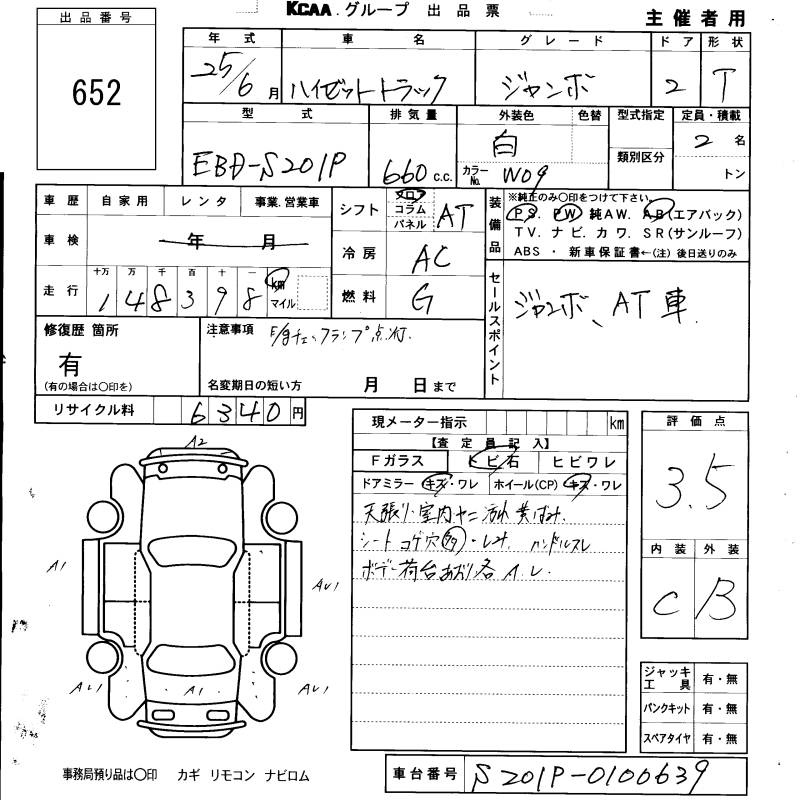 KCAA グループ 出品票
主催者用
出品番号
652
年式 車名 グレード ドア 形状
25/6月 ハイゼットトラック ジャンボ 2 T
型式 排気量 外装色 色替 型式指定 定員・積載
EBD-S201P 660 c.c. 白 類別区分 2名
カラーNo. W09 トン
車歴 自家用 レンタ 事業.営業車
車検 年 月
走行 十万 万 千 百 十 一 km マイル
148398
シフト フロア コラム パネル AT
冷房 AC
燃料 G
装備品
※純正のみ〇印をつけて下さい。
P.S. PW 純AW. AB(エアバック)
TV. ナビ. カワ. SR(サンルーフ)
ABS ・ 新車保証書←(注)後日送りのみ
セールスポイント
ジャンボ、AT車.
修復歴 箇所
有
(有の場合は〇印を)
注意事項 E/gチェックランプ点灯.
名変期日の短い方 月 日まで
リサイクル料 6340円
現メーター指示 km
【査定員記入】
Fガラス トビ石 ヒビワレ
ドアミラー キズ・ワレ ホイール(CP) キズ・ワレ
天張り・室内ヤニ汚れ 黄ばみ.
シート コゲ穴 ・しみ. ハンドルスレ
ボデー荷台あおり各A.U.
評価点
3.5
内装 外装
C B
A2
A1
AU1
AU1
A1
AU1
ジャッキ工具 有・無
パンクキット 有・無
スペアタイヤ 有・無
事務局預り品は〇印 カギ リモコン ナビロム
車台番号 S201P-0100639